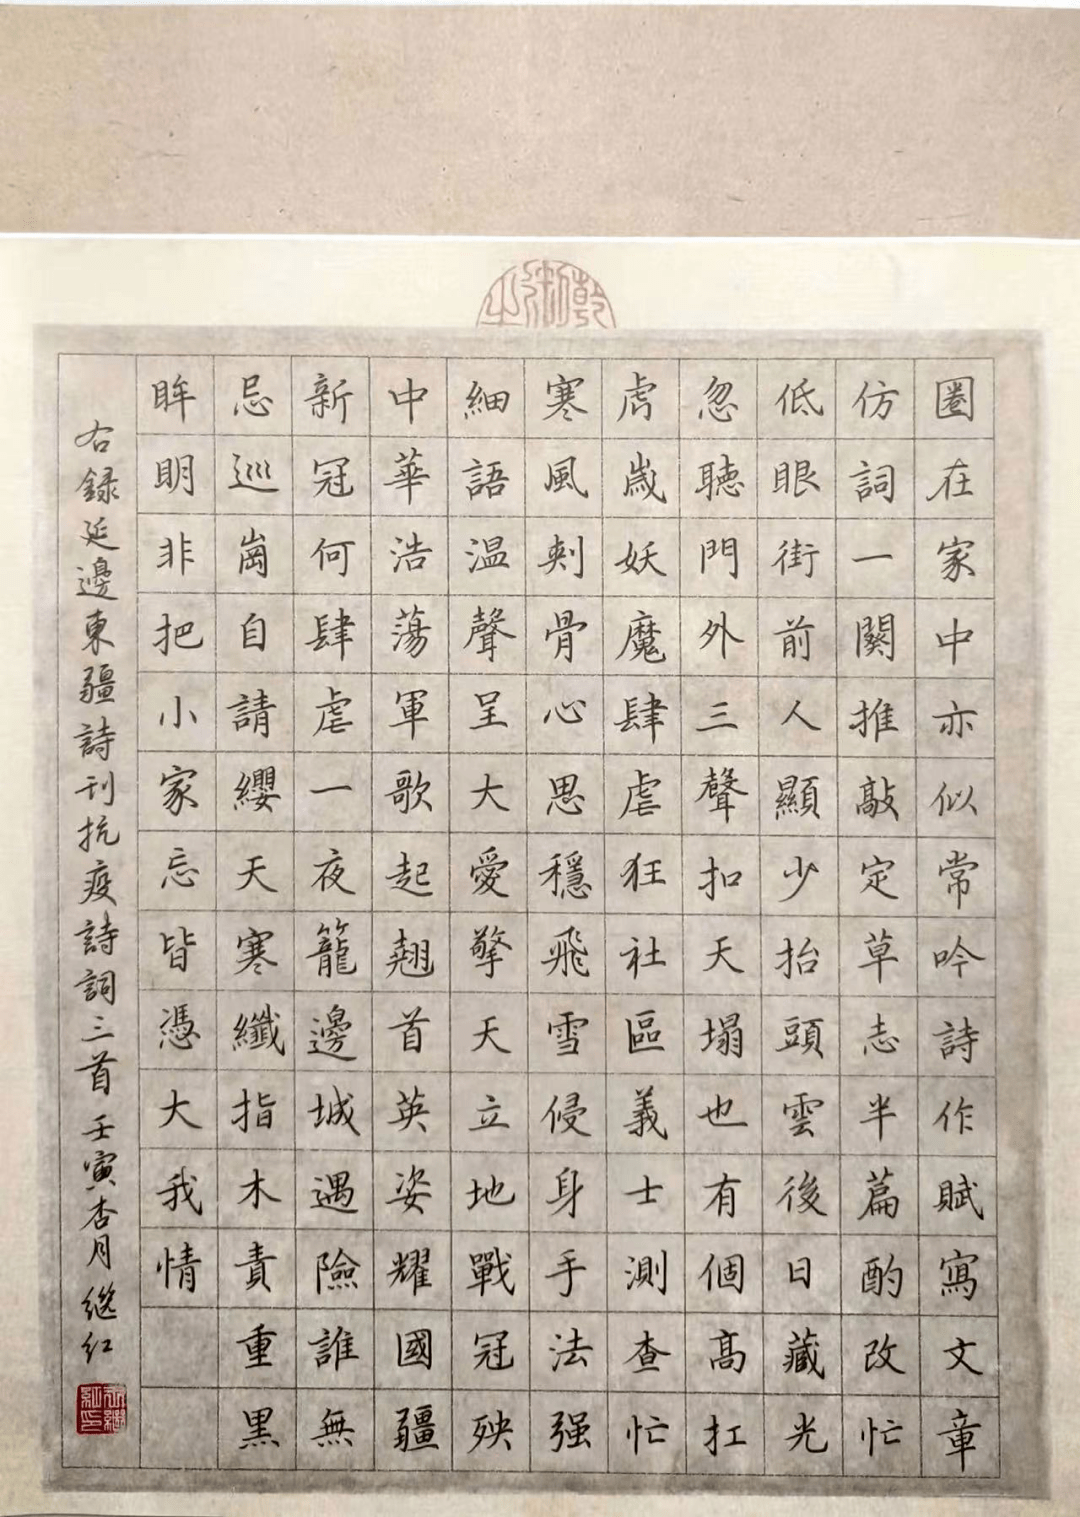 圈在家中亦似常吟詩作賦寫文章
仿詞一闋推敲定草志半篇酌改忙
低眼街前人顯少抬頭雲後日藏光
忽聽門外三聲扣天塌也有個高扛
虎歲妖魔肆虐狂社區義士測查忙
寒風刺骨心思穩飛雪侵身手法强
細語温聲呈大愛擎天立地戰冠殃
中華浩蕩軍歌起翹首英姿耀國疆
新冠何肆虐一夜籠邊城遇險誰無
忌巡崗自請纓天寒纖指木責重黑
眸明非把小家忘皆憑大我情
右録延邊東疆詩刊抗疫詩詞三首壬寅杏月继红